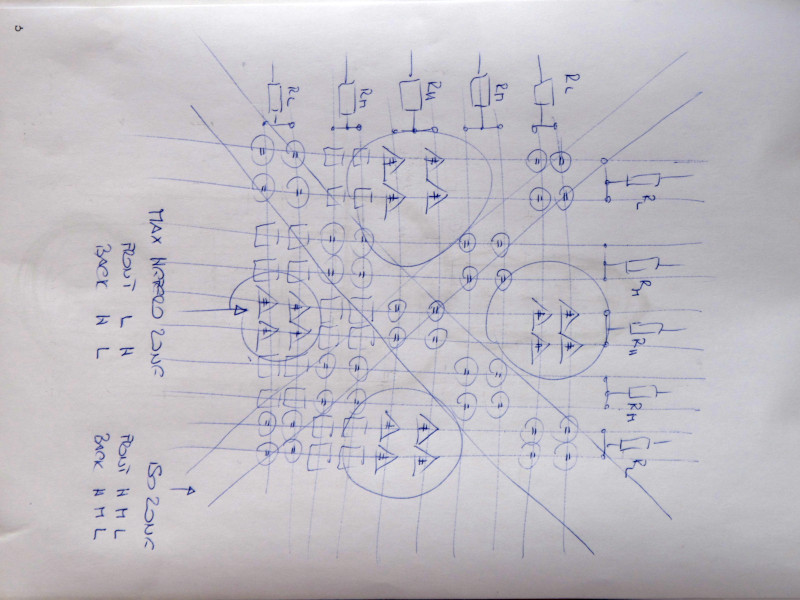 RL
RM
RH
RM
RL
RL
RM
RH
RM
RL
MAX ZONE
FRONT L H
BACK H L
ISO ZONE
FRONT H M L
BACK H M L